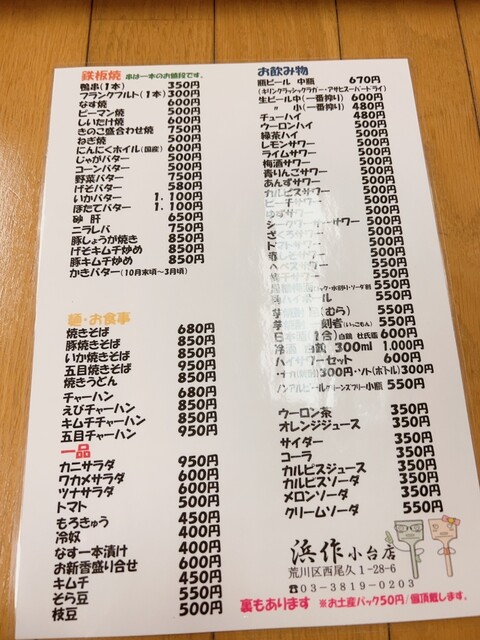 鉄板焼 串は一本のお値段です。
鴨串(1本) 350円
フランクフルト(1本) 300円
なす焼 600円
ピーマン焼 500円
しいたけ焼 600円
きのこ盛合わせ焼 750円
ねぎ焼 500円
にんにくホイル(国産) 600円
じゃがバター 500円
コーンバター 500円
野菜バター 750円
げそバター 580円
いかバター 1.100円
ほたてバター 1.100円
砂肝 650円
ニラレバ 750円
豚しょうが焼き 850円
げそキムチ炒め 850円
豚キムチ炒め 850円
かきバター(10月末頃~3月頃)
麺・お食事
焼きそば 680円
豚焼きそば 850円
いか焼きそば 850円
五目焼きそば 950円
焼きうどん 850円
チャーハン 680円
えびチャーハン 850円
キムチチャーハン 850円
五目チャーハン 950円
一品
カニサラダ 950円
ワカメサラダ 600円
ツナサラダ 600円
トマト 500円
もろきゅう 450円
冷奴 400円
なす一本漬け 400円
お新香盛り合せ 600円
キムチ 450円
そら豆 550円
枝豆 500円
お飲み物
瓶ビール 中瓶 670円
(キリンクラッシックラガー・アサヒスーパードライ)
生ビール中(一番搾り) 600円
〃 小(一番搾り) 480円
チューハイ 480円
ウーロンハイ 500円
緑茶ハイ 500円
レモンサワー 500円
ライムサワー 500円
梅酒サワー 500円
青りんごサワー 500円
あんずサワー 500円
カルピスサワー 500円
ピーチサワー 500円
ゆずサワー 500円
シークワーサーサワー 500円
ざくろサワー 500円
トマトサワー 500円
サワー 500円
サワー 550円
サワー 550円
ック・水割り・ソーダ割 550円
ハイボール 550円
(むら) 550円
刻者(いっこもん) 550円
日本酒(1合)白鶴 杜氏鑑 600円
冷酒 白鶴 300ml 1.000円
ハイサワーセット 600円
300円・ソト(ボトル)300円
ノンアルビールグリーンズフリー小瓶 550円
ウーロン茶 350円
オレンジジュース 350円
サイダー 350円
コーラ 350円
カルピスジュース 350円
カルピスソーダ 350円
メロンソーダ 350円
クリームソーダ 550円
浜作 小台店
荒川区西尾久1-28-6
☎03-3819-0203
裏もあります ※お土産パック50円/個頂戴します。